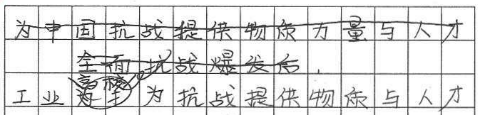 为中国抗战提供物质力量与人才
全面抗战爆发后，
工业高校为抗战提供物质与人才